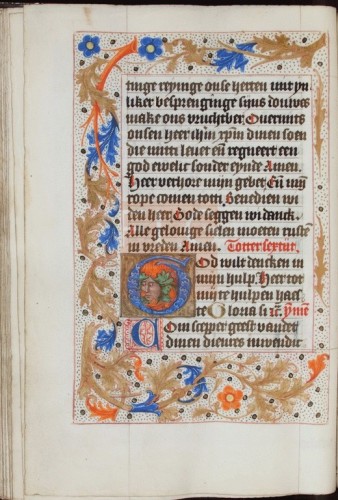 tinge reyninge onse herten uut yn
liker besprenginge sijns douwes
make ons vruchtber Ouermits
onsen heer ihm xpm dinen soen
die mitti leuet en regneert een
god ewelic sonder eynde Amen.
Heer verhore mijn gebet En mijn
rope comen totti. Benedien wi
den heer God seggen wi danck.
Alle gelouige sielen moeten rusten
in vreden Amen. Totter sexten.
God wilt dencken in
mijn hulp. Heer tot
mi te hulpen haes
te Gloria
Com scepper geest vanden
dinen dienres inwendic